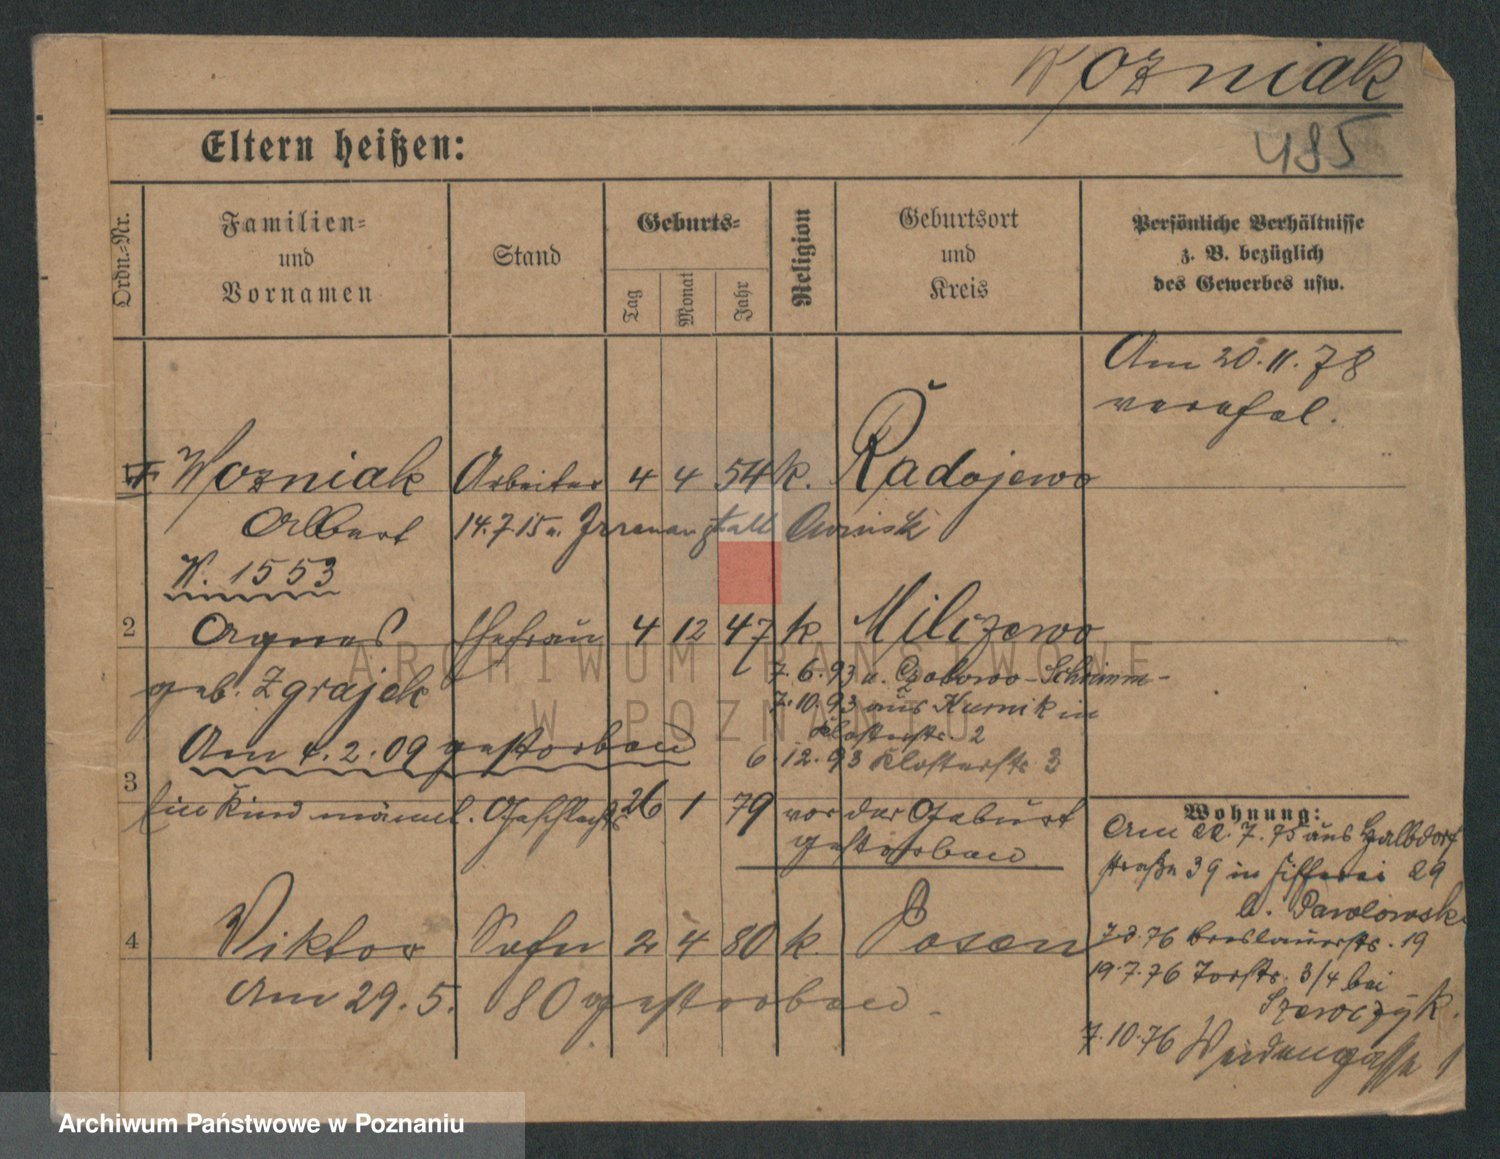 Wozniak
485
Eltern heißen:
Ordn.-Nr.
Familien-
und
Vornamen
Stand
Geburts-
Tag
Monat
Jahr
Religion
Geburtsort
und
Kreis
Persönliche Verhältnisse
z. B. bezüglich
des Gewerbes usw.
Am 20.11.78
verehel.
1 Wozniak Arbeiter 4 4 54 k. Radojewo
Albert 14.7.15 n. Irrenanstalt Owinsk
K. 1553
2 Agnes Ehefrau 4 12 47 k Milczewo
geb. Zgrajek 7.6.93 n. Schrimm-
7.10.93 aus Kurnik in
Klosterstr. 2
Am 4.2.09 gestorben 6 12.93 Klosterstr 3
3
Ein Kind männl. Geschlechts 26 1 79 vor der Geburt
gestorben
4 Viktor Sohn 2 4 80 k. Posen
Am 29.5. 80 gestorben.
Wohnung:
Am 22.7.75 aus Halbdorf
straße 39 in 29
b. Pawlowski
7.3.76 Breslauerstr. 19
19.7.76 Torstr. 3/4 bei
Szewczyk.
7.10.76 Weidengasse 1
ARCHIWUM PAŃSTWOWE
W POZNANIU
Archiwum Państwowe w Poznaniu